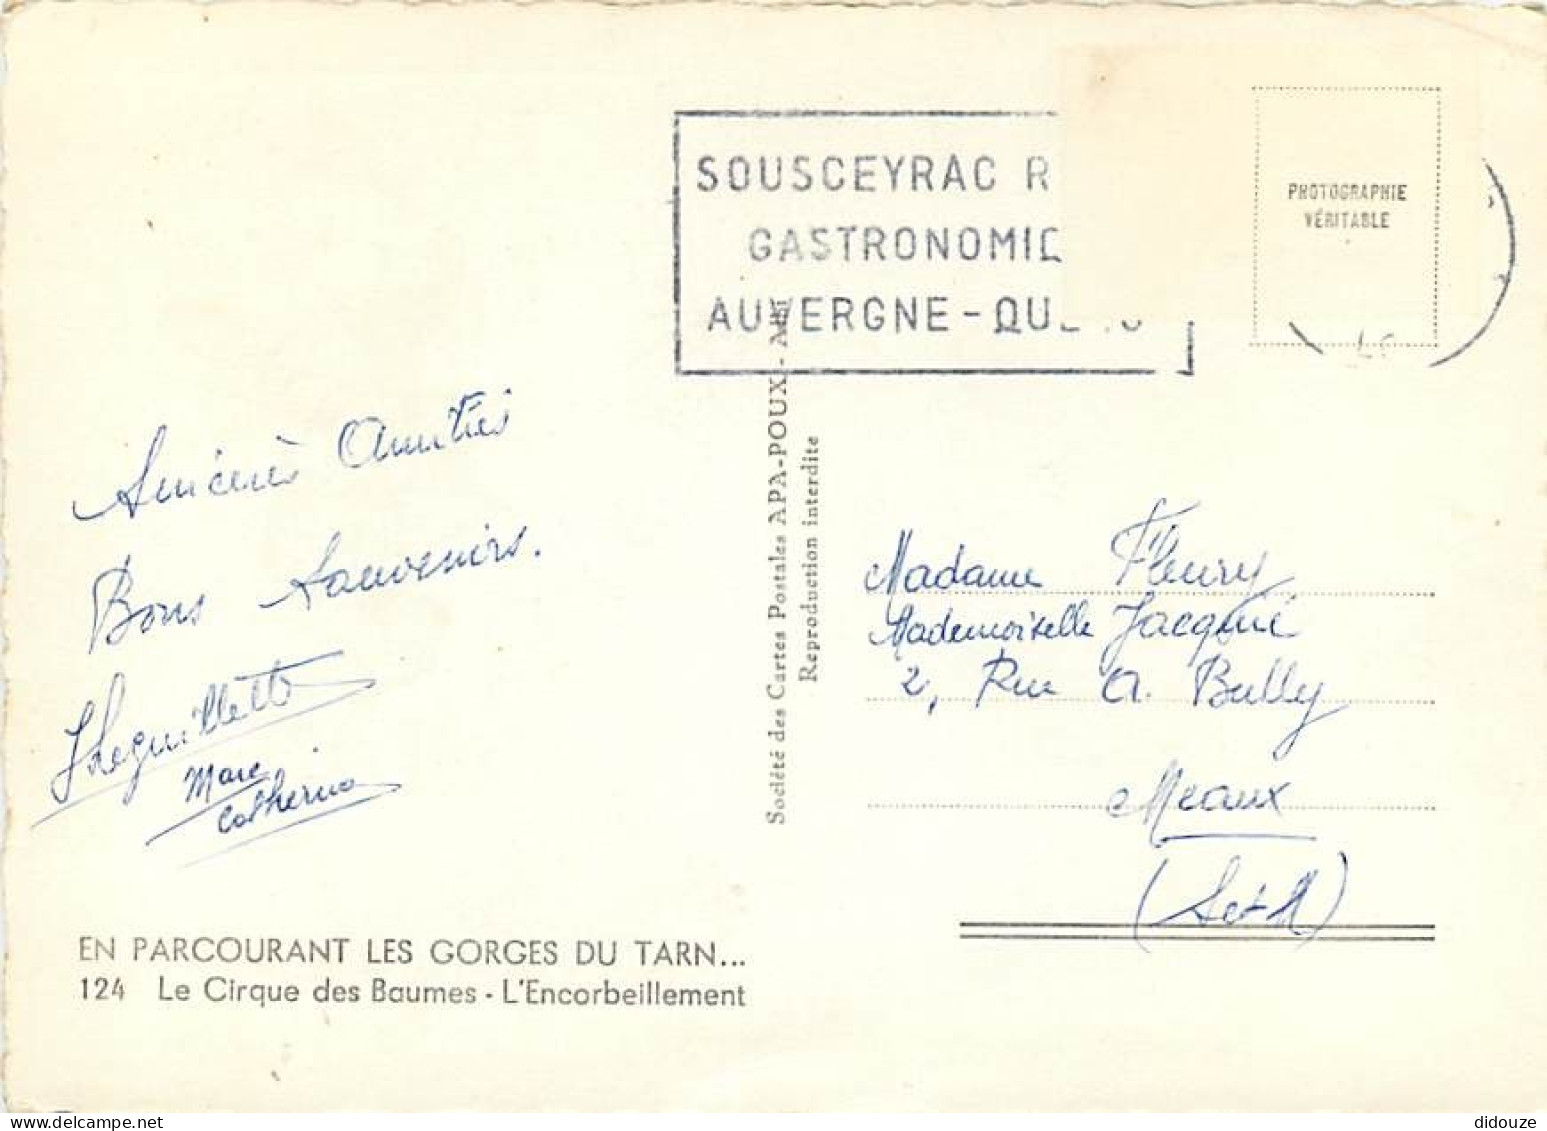 SOUSCEYRAC R
GASTRONOMI
AUVERGNE - QU
PHOTOGRAPHIE
VÉRITABLE
Sincères Amitiés
Bons Souvenirs.
Marc
Catherine
EN PARCOURANT LES GORGES DU TARN...
124 Le Cirque des Baumes - L'Encorbeillement
Société des Cartes Postales APA-POUX - ALBI
Reproduction interdite
Madame Fleury
Mademoiselle Jacqmé
2, Rue A. Bully
Meaux
(S et M)
didouze